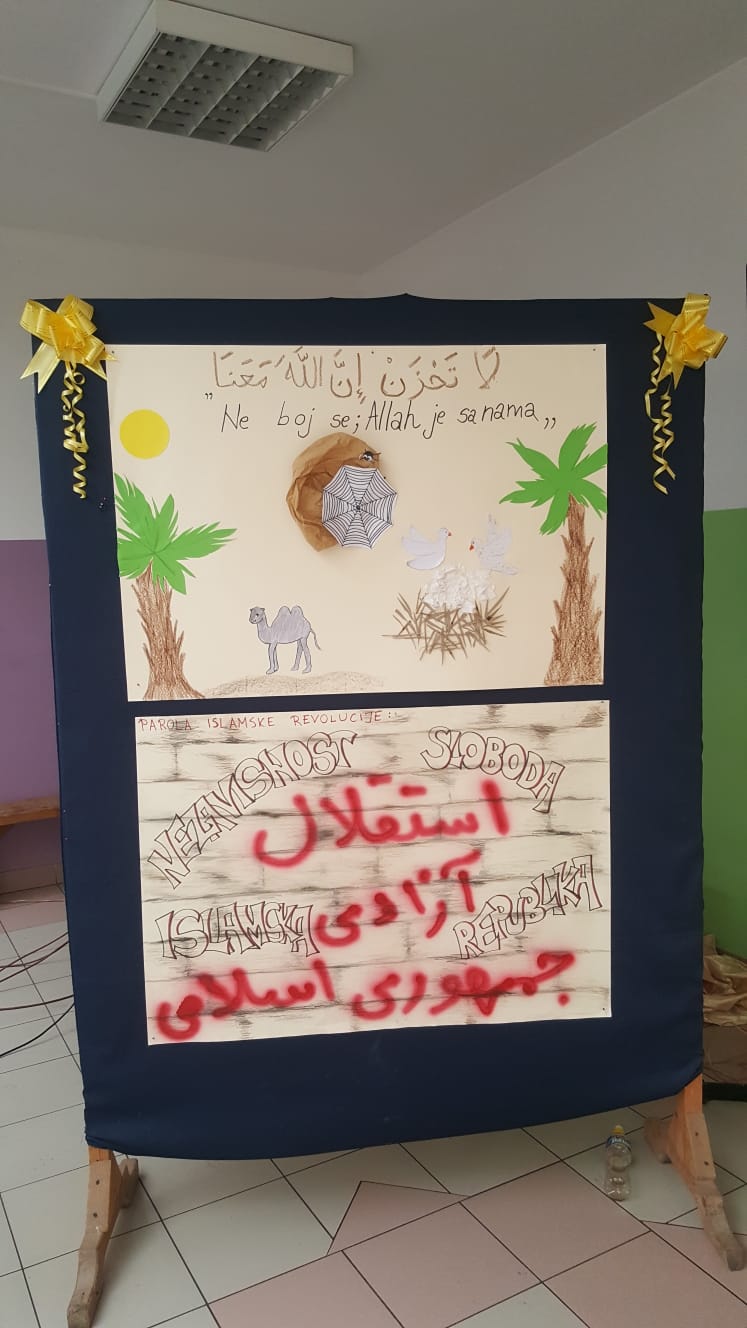 لَا تَحْزَنْ إِنَّ اللَّهَ مَعَنَا
"Ne boj se; Allah je sa nama„
PAROLA ISLAMSKE REVOLUCIJE:
NEZAVISNOST SLOBODA
استقلال
آزادی
ISLAMSKA REPUBLIKA
جمهوری اسلامی